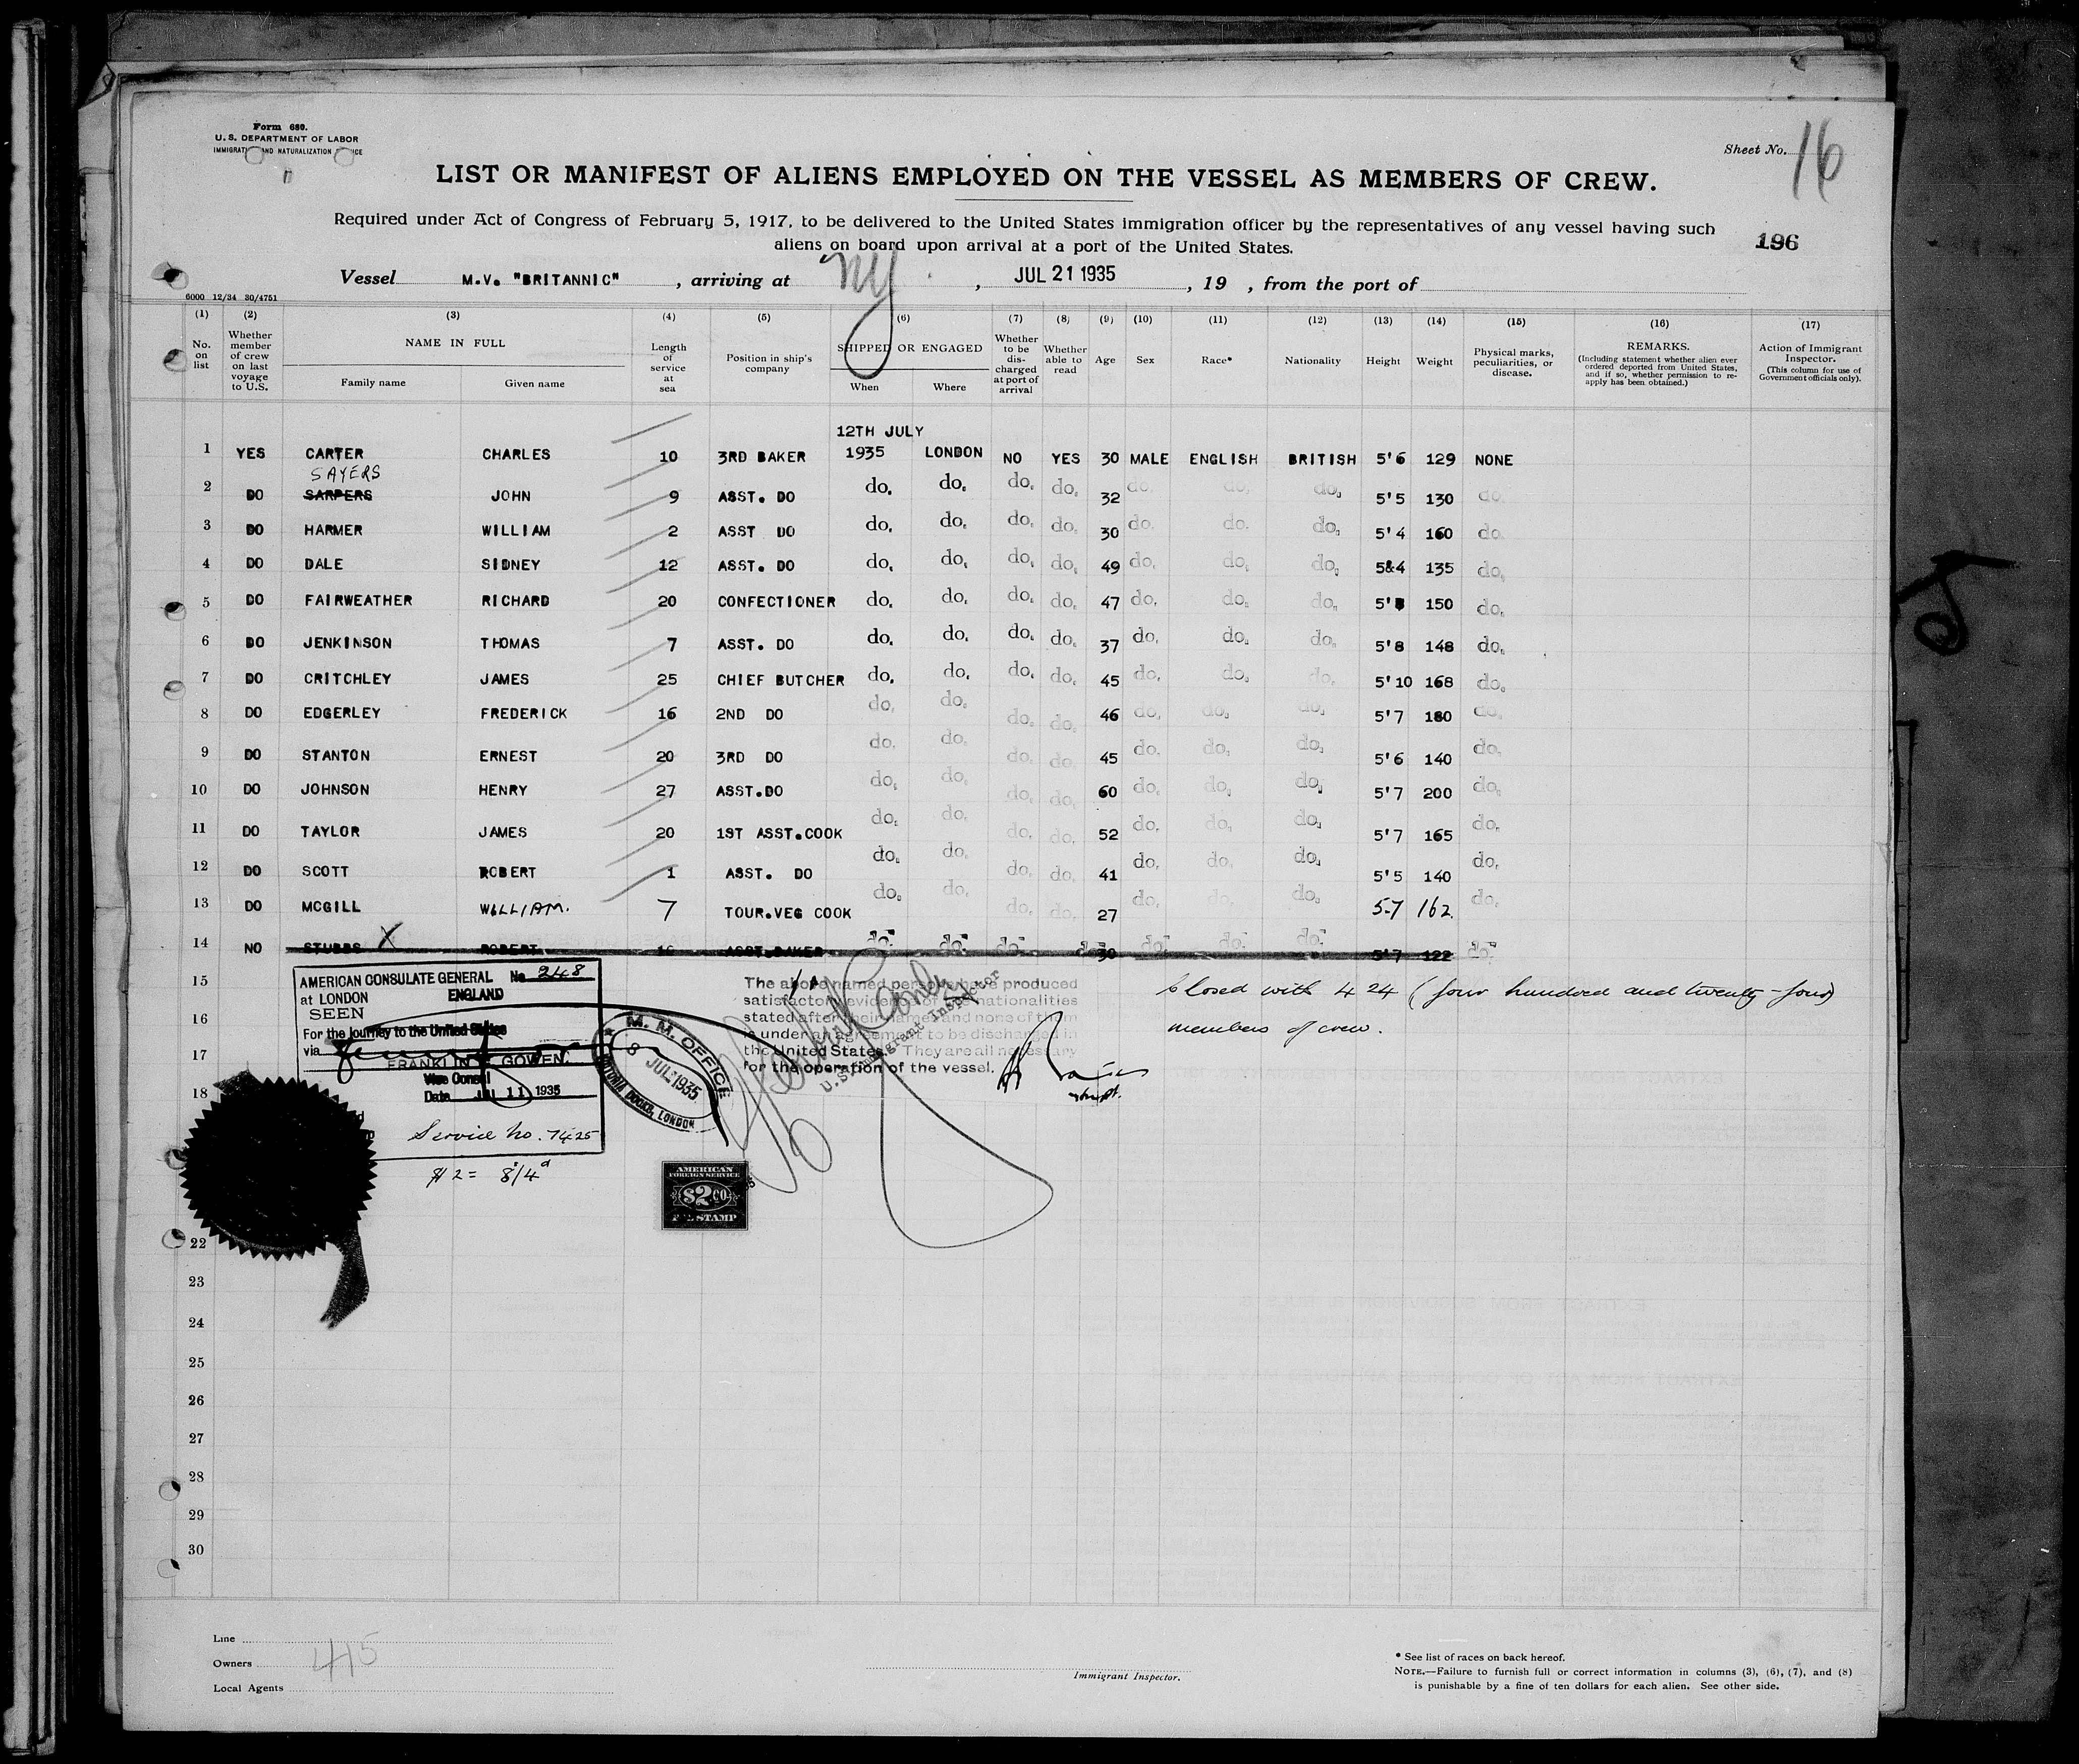 Form 680.
U. S. DEPARTMENT OF LABOR
IMMIGRATION AND NATURALIZATION SERVICE
Sheet No. 16
LIST OR MANIFEST OF ALIENS EMPLOYED ON THE VESSEL AS MEMBERS OF CREW.
Required under Act of Congress of February 5, 1917, to be delivered to the United States immigration officer by the representatives of any vessel having such
aliens on board upon arrival at a port of the United States.
196
Vessel M.V. "BRITANNIC", arriving at NY, JUL 21 1935, 19 , from the port of
6000 12/34 30/4751
(1) (2) (3) (4) (5) (6) (7) (8) (9) (10) (11) (12) (13) (14) (15) (16) (17)
No. on list
Whether member of crew on last voyage to U.S.
NAME IN FULL
Family name Given name
Length of service at sea
Position in ship's company
SHIPPED OR ENGAGED
When Where
Whether to be discharged at port of arrival
Whether able to read
Age
Sex
Race*
Nationality
Height
Weight
Physical marks, peculiarities, or disease.
REMARKS.
(Including statement whether alien ever ordered deported from United States, and if so, whether permission to re-apply has been obtained.)
Action of Immigrant Inspector.
(This column for use of Government officials only).
12TH JULY
1 YES CARTER CHARLES 10 3RD BAKER 1935 LONDON NO YES 30 MALE ENGLISH BRITISH 5'6 129 NONE
SAYERS
2 DO SARPERS JOHN 9 ASST. DO do. do. do. do. 32 do. do. do. 5'5 130 do.
3 DO HARMER WILLIAM 2 ASST DO do. do. do. do. 30 do. do. do. 5'4 160 do.
4 DO DALE SIDNEY 12 ASST. DO do. do. do. do. 49 do. do. do. 5&4 135 do.
5 DO FAIRWEATHER RICHARD 20 CONFECTIONER do. do. do. do. 47 do. do. do. 150 do.
6 DO JENKINSON THOMAS 7 ASST. DO do. do. do. do. 37 do. do. do. 5'8 148 do.
7 DO CRITCHLEY JAMES 25 CHIEF BUTCHER do. do. do. do. 45 do. do. do. 5'10 168 do.
8 DO EDGERLEY FREDERICK 16 2ND DO do. do. do. do. 46 do. do. do. 5'7 180 do.
9 DO STANTON ERNEST 20 3RD DO do. do. do. do. 45 do. do. do. 5'6 140 do.
10 DO JOHNSON HENRY 27 ASST.DO do. do. do. do. 60 do. do. do. 5'7 200 do.
11 DO TAYLOR JAMES 20 1ST ASST.COOK do. do. do. do. 52 do. do. do. 5'7 165 do.
12 DO SCOTT ROBERT 1 ASST. DO do. do. do. do. 41 do. do. do. 5'5 140 do.
13 DO MCGILL WILLIAM. 7 TOUR.VEG COOK do. do. do. do. 27 do. do. do. 5-7 162. do.
14 NO STUBBS X ROBERT 16 ASST.BAKER do. do. do. do. 30 do. do. do. 5'7 122 do.
15
16
17
18
AMERICAN CONSULATE GENERAL No 248
at LONDON ENGLAND
SEEN
For the journey to the United States
via
FRANKLIN C. GOWEN.
Vice Consul
Date JUL 11 1935
Service No. 7425
$2 = 8/4d
M. M. OFFICE
8 JUL 1935
VICTORIA DOCKS, LONDON
The above named persons have produced
satisfactory evidence of the nationalities
stated after their names and none of them
is under an agreement to be discharged in
the United States. They are all necessary
for the operation of the vessel.
U.S. Immigrant Inspector
Closed with 424 (four hundred and twenty-four)
members of crew.
AMERICAN
FOREIGN SERVICE
$2.00
FEE STAMP
22
23
24
25
26
27
28
29
30
Line
Owners 415
Local Agents
Immigrant Inspector.
* See list of races on back hereof.
NOTE.—Failure to furnish full or correct information in columns (3), (6), (7), and (8)
is punishable by a fine of ten dollars for each alien. See other side.